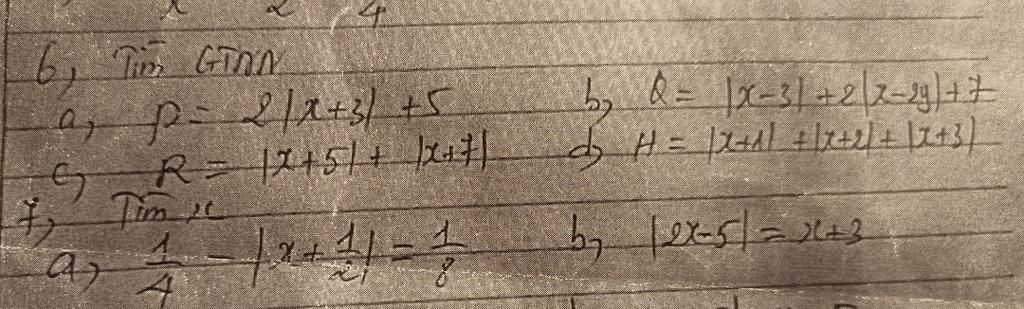 6, Tìm GTNN
a, P = 2|x+3| +5 b, Q = |x-3| +2|x-2y|+7
c, R = |x+5| + |x+7| d, H = |x+1| +|x+2| + |x+3|
7, Tìm x
a, 1/4 - |x + 1/2| = 1/8 b, |2x-5| = x+3